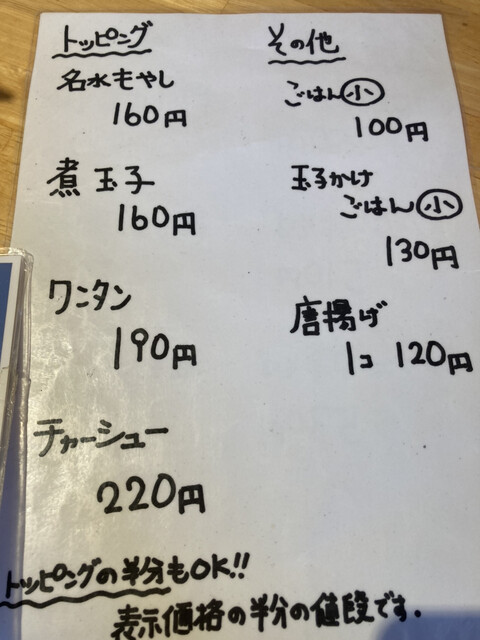 トッピング
名水もやし
160円
煮玉子
160円
ワンタン
190円
チャーシュー
220円
その他
ごはん小
100円
玉子かけ
ごはん小
130円
唐揚げ
1コ 120円
トッピングの半分もOK!!
表示価格の半分の値段です.